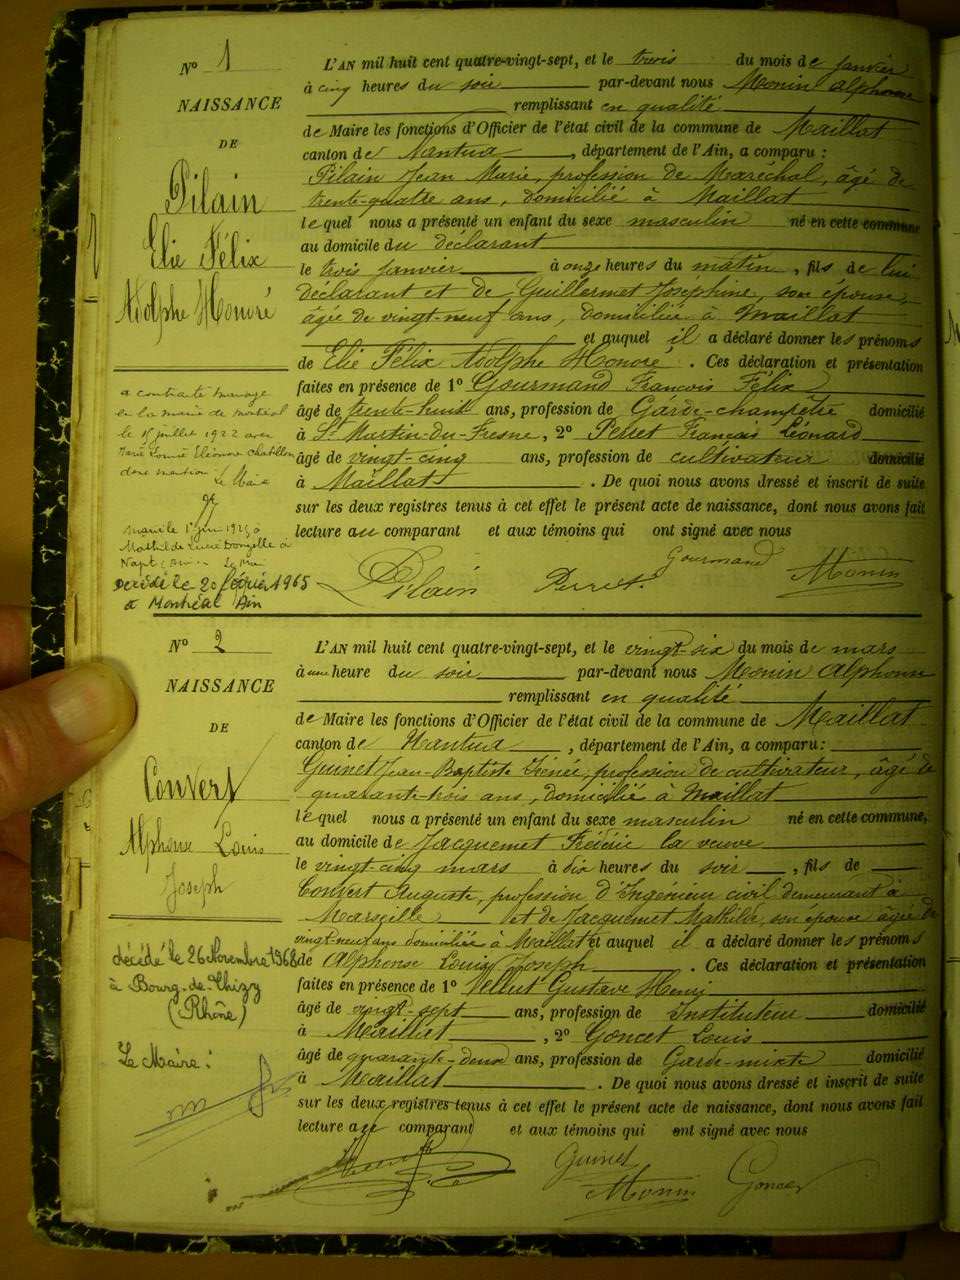 N° 1
NAISSANCE
DE
Pilain
Elie Félix
Adolphe Honoré
a contracté mariage
en la mairie de Montréal
le 15 juillet 1922 avec
Marie Louise Eléonore Chatillon
dont mention Le Maire
Marié le 1er juin 1929 à
Mathilde Lucie
Décédé le 20 février 1965
à Montréal Ain
L'AN mil huit cent quatre-vingt-sept, et le trois du mois de janvier
à cinq heures du soir par-devant nous Monin Alphonse
remplissant en qualité
de Maire les fonctions d'Officier de l'état civil de la commune de Maillat
canton de Nantua, département de l'Ain, a comparu :
Pilain Jean Marie, profession de Maréchal, âgé de
trente-quatre ans, domicilié à Maillat
lequel nous a présenté un enfant du sexe masculin né en cette commune
au domicile du déclarant
le trois janvier à onze heures du matin, fils de lui
déclarant et de Guillermet Joséphine, son épouse,
âgée de vingt-neuf ans, domiciliée à Maillat
et auquel il a déclaré donner les prénoms
de Elie Félix Adolphe Honoré. Ces déclaration et présentation
faites en présence de 1° Gourmand François Félix
âgé de trente-huit ans, profession de Garde-champêtre domicilié
à St Martin-du-Fresne, 2° Perret François Léonard
âgé de vingt-cinq ans, profession de cultivateur domicilié
à Maillat. De quoi nous avons dressé et inscrit de suite
sur les deux registres tenus à cet effet le présent acte de naissance, dont nous avons fait
lecture au comparant et aux témoins qui ont signé avec nous
Pilain Perret Gourmand Monin
N° 2
NAISSANCE
DE
Convert
Alphonse Louis
Joseph
décédé le 26 Novembre 1968
à Bourg-de-Thizy
(Rhône)
Le Maire :
L'AN mil huit cent quatre-vingt-sept, et le vingt-six du mois de mars
à une heure du soir par-devant nous Monin Alphonse
remplissant en qualité
de Maire les fonctions d'Officier de l'état civil de la commune de Maillat
canton de Nantua, département de l'Ain, a comparu :
Guinet Jean-Baptiste Irénée, profession de cultivateur, âgé de
quarante-trois ans, domicilié à Maillat
lequel nous a présenté un enfant du sexe masculin né en cette commune,
au domicile de Jacquemet Frédéric la veuve
le vingt-cinq mars à dix heures du soir, fils de
Convert Auguste, profession d'Ingénieur civil demeurant à
Marseille et de Jacquemet Mathilde, son épouse âgée de
vingt-neuf ans domiciliée à Maillat et auquel il a déclaré donner les prénoms
de Alphonse Louis Joseph. Ces déclaration et présentation
faites en présence de 1° Vellut Gustave Henri
âgé de vingt-sept ans, profession de Instituteur domicilié
à Maillat, 2° Goncet Louis
âgé de quarante-deux ans, profession de Garde-mixte domicilié
à Maillat. De quoi nous avons dressé et inscrit de suite
sur les deux registres tenus à cet effet le présent acte de naissance, dont nous avons fait
lecture au comparant et aux témoins qui ont signé avec nous
Guinet
Monin Goncet